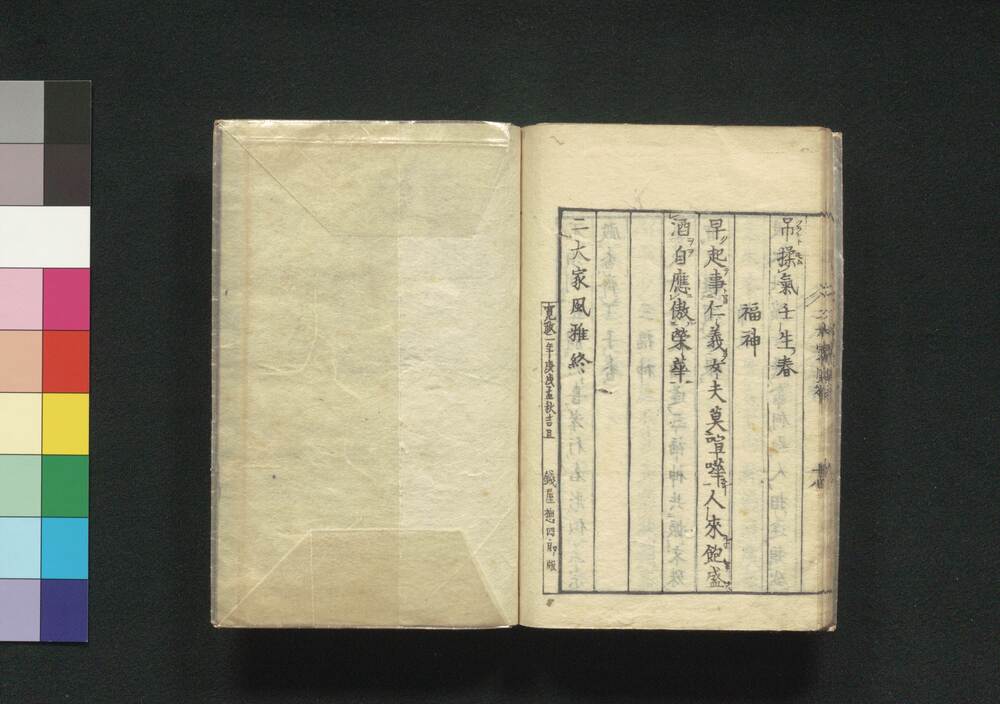 吊揉氣壬生春
福神
早起事仁義女夫莫喧嘩人來飽盛
酒自應傲榮華
二大家風雅終
寛政二年庚戌孟秋吉旦
錢屋惣四郎版